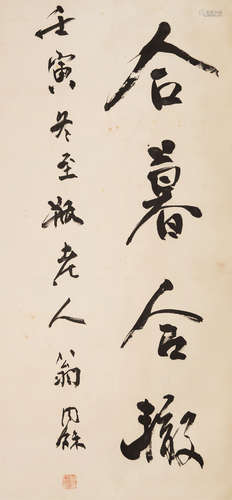 合暮合撤
壬寅冬至瓶老人翁同龢